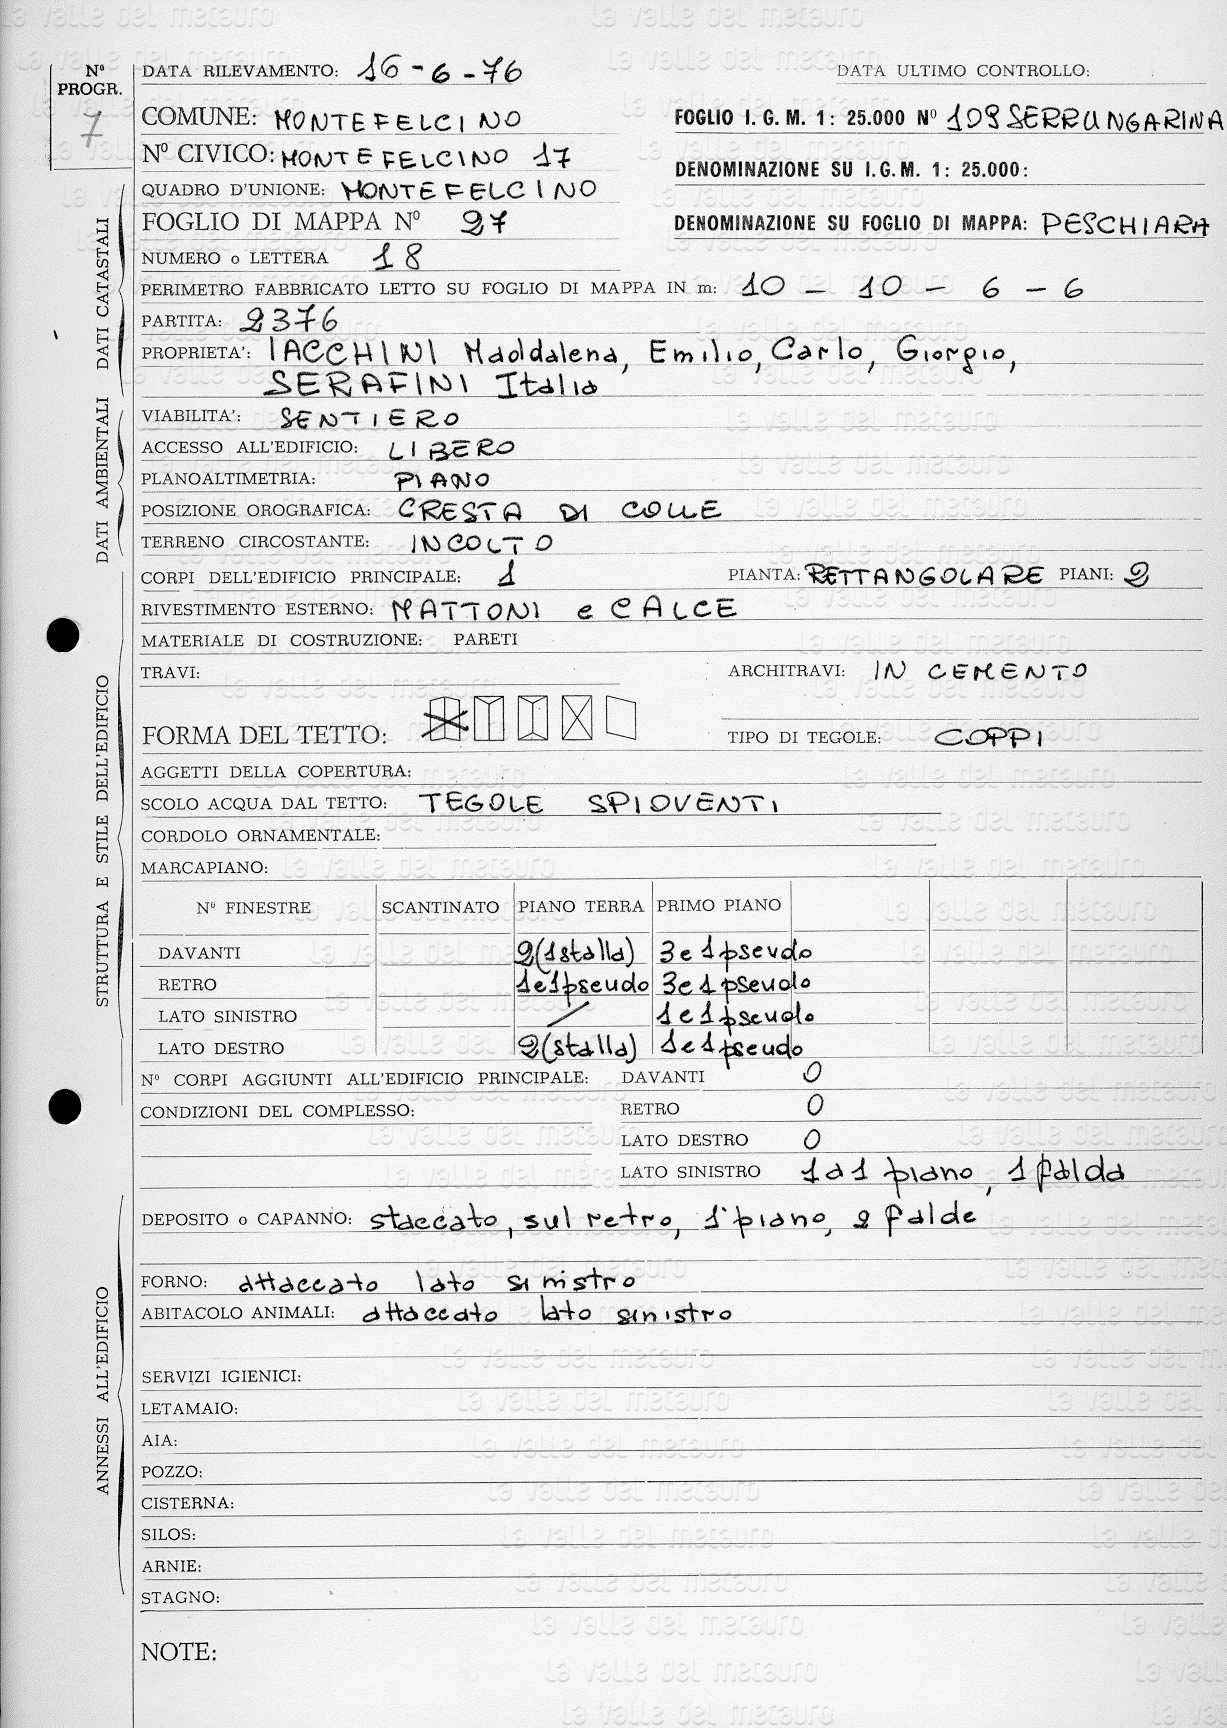 Nº PROGR. 7
DATA RILEVAMENTO: 16-6-76 DATA ULTIMO CONTROLLO:
COMUNE: MONTEFELCINO FOGLIO I. G. M. 1: 25.000 Nº 109 SERRUNGARINA
Nº CIVICO: MONTEFELCINO 17 DENOMINAZIONE SU I.G.M. 1: 25.000:
QUADRO D'UNIONE: MONTEFELCINO
FOGLIO DI MAPPA Nº 27 DENOMINAZIONE SU FOGLIO DI MAPPA: PESCHIARA
NUMERO o LETTERA 18
PERIMETRO FABBRICATO LETTO SU FOGLIO DI MAPPA IN m: 10 - 10 - 6 - 6
PARTITA: 2376
PROPRIETA': IACCHINI Maddalena, Emilio, Carlo, Giorgio,
SERAFINI Italia
DATI CATASTALI
VIABILITA': SENTIERO
ACCESSO ALL'EDIFICIO: LIBERO
PLANOALTIMETRIA: PIANO
POSIZIONE OROGRAFICA: CRESTA DI COLLE
TERRENO CIRCOSTANTE: INCOLTO
DATI AMBIENTALI
CORPI DELL'EDIFICIO PRINCIPALE: 1 PIANTA: RETTANGOLARE PIANI: 2
RIVESTIMENTO ESTERNO: MATTONI e CALCE
MATERIALE DI COSTRUZIONE: PARETI
TRAVI: ARCHITRAVI: IN CEMENTO
FORMA DEL TETTO: TIPO DI TEGOLE: COPPI
AGGETTI DELLA COPERTURA:
SCOLO ACQUA DAL TETTO: TEGOLE SPIOVENTI
CORDOLO ORNAMENTALE:
MARCAPIANO:
Nº FINESTRE SCANTINATO PIANO TERRA PRIMO PIANO
DAVANTI 2(1stalla) 3 e 1 pseudo
RETRO 1e1pseudo 3e1pseudo
LATO SINISTRO / 1 e 1 pseudo
LATO DESTRO 2(stalla) 1e1pseudo
STRUTTURA E STILE DELL'EDIFICIO
Nº CORPI AGGIUNTI ALL'EDIFICIO PRINCIPALE: DAVANTI 0
CONDIZIONI DEL COMPLESSO: RETRO 0
LATO DESTRO 0
LATO SINISTRO 1 a 1 piano, 1 falda
DEPOSITO o CAPANNO: staccato, sul retro, 1 piano, 2 falde
FORNO: attaccato lato sinistro
ABITACOLO ANIMALI: attaccato lato sinistro
SERVIZI IGIENICI:
LETAMAIO:
AIA:
POZZO:
CISTERNA:
SILOS:
ARNIE:
STAGNO:
ANNESSI ALL'EDIFICIO
NOTE:
la valle del metauro